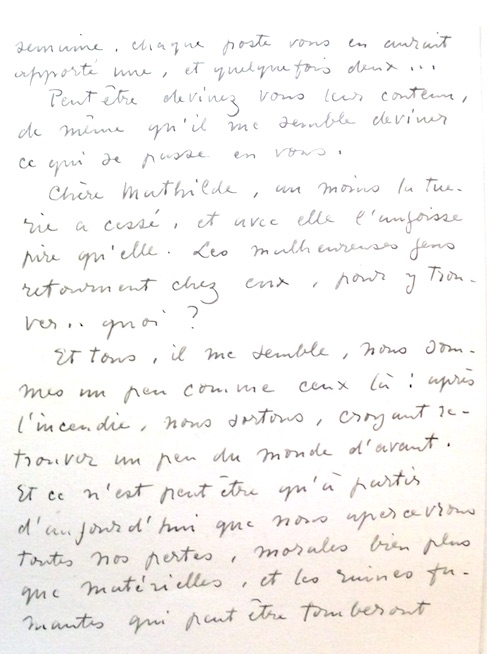 semaine, chaque poste vous en aurait
apporté une, et quelquefois deux...
Peut être devinez vous leur contenu,
de même qu'il me semble deviner
ce qui se passe en vous.
Chère Mathilde, au moins la tue-
rie a cessé, et avec elle l'angoisse
pire qu'elle. Les malheureuses gens
retournent chez eux, pour y trou-
ver.. quoi ?
Et tous, il me semble, nous som-
mes un peu comme ceux là : après
l'incendie, nous sortons, croyant re-
trouver un peu du monde d'avant.
Et ce n'est peut être qu'à partir
d'aujourd'hui que nous apercevrons
toutes nos pertes, morales bien plus
que matérielles, et les ruines fu-
mantes qui peut être tomberont